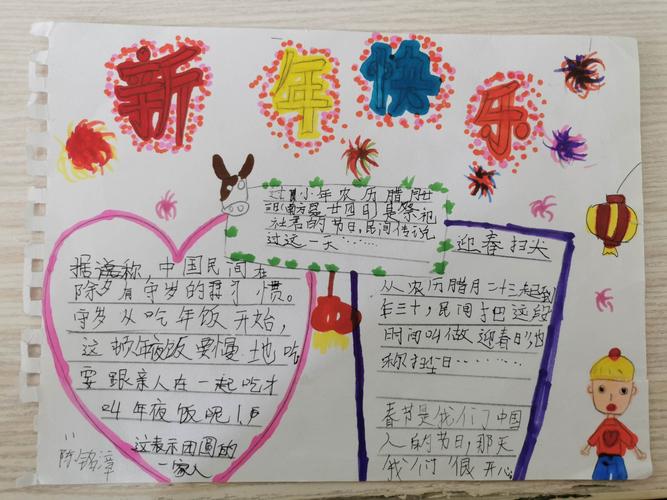 新年快乐
过小年农历腊月廿
四日是祭祀
社君的节日,民间传说
过这一天……
据说称,中国民间在
除夕有守岁的习惯。
守岁从吃年饭开始,
这顿年夜饭要慢地吃
要跟亲人在一起吃才
叫年夜饭呢!
这表示团圆的
一家人
迎春扫尘
从农历腊月二十三起到
年三十,民间把这段
时间叫做迎春日,也
称扫尘日……
春节是我们中国
人的节日,那天
我们很开心